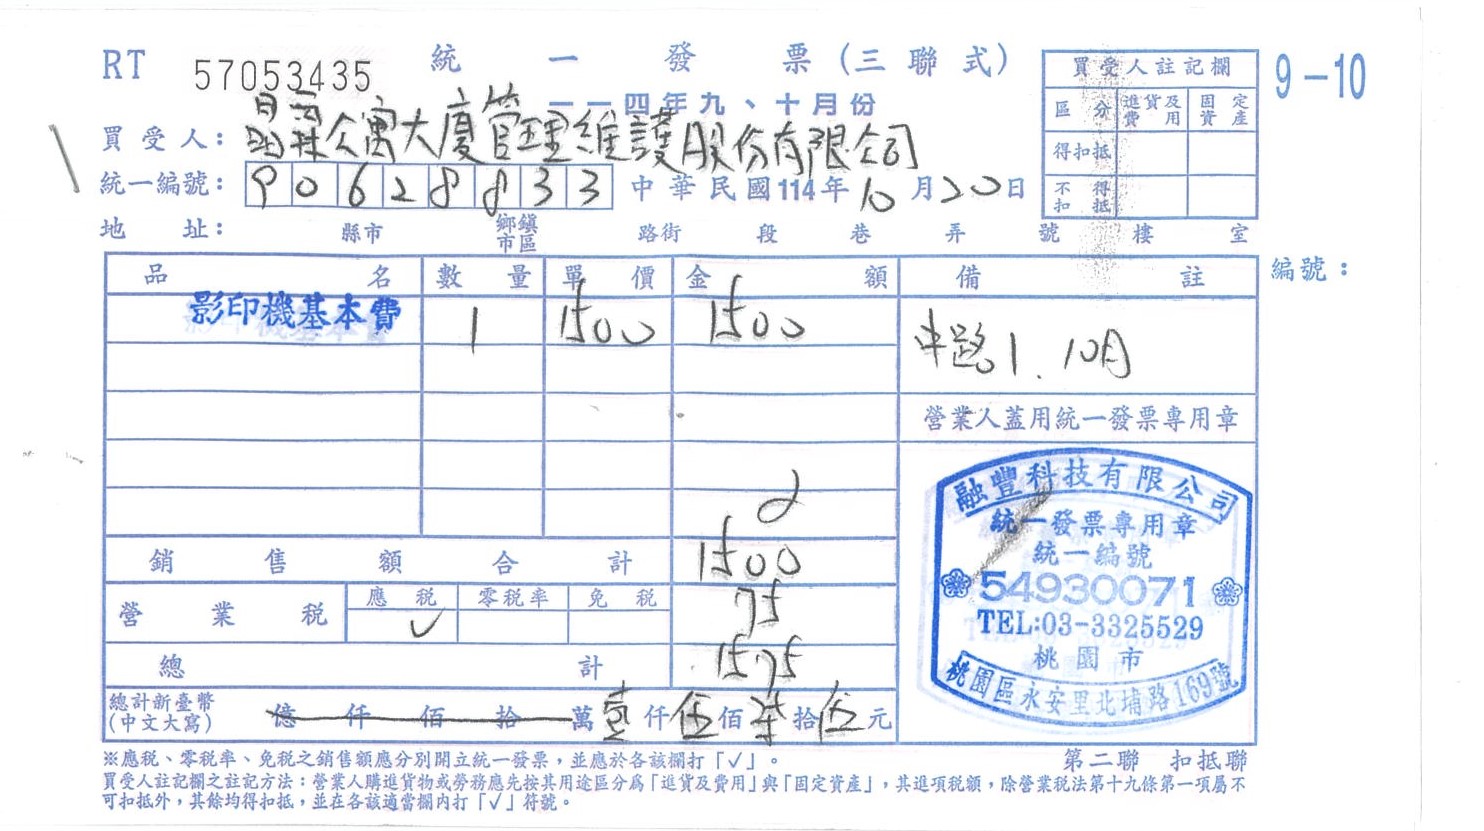 RT 57053435 統一發票(三聯式) 9-10
一一四年九、十月份
買受人註記欄
區分 進貨及費用 固定資產
得扣抵
不得扣抵
買受人: 公寓大廈管理維護股份有限公司
統一編號: 90628833 中華民國114年10月20日
地址: 縣市 鄉鎮市區 路街 段 巷 弄 號 樓 室
品名 數量 單價 金額 備註 編號:
影印機基本費 1 1500 1500 中路1. 10月
營業人蓋用統一發票專用章
銷售額合計 1500
營業稅 應稅 ✓ 零稅率 免稅 75
總計 1575
總計新臺幣(中文大寫) 億 仟 佰 拾 萬 壹 仟 伍 佰 柒 拾 伍 元
融豐科技有限公司
統一發票專用章
統一編號
54930071
TEL:03-3325529
桃園市
桃園區永安里北埔路169號
※應稅、零稅率、免稅之銷售額應分別開立統一發票,並應於各該欄打「✓」。
第二聯 扣抵聯
買受人註記欄之註記方法:營業人購進貨物或勞務應先按其用途區分為「進貨及費用」與「固定資產」,其進項稅額,除營業稅法第十九條第一項屬不
可扣抵外,其餘均得扣抵,並在各該適當欄內打「✓」符號。